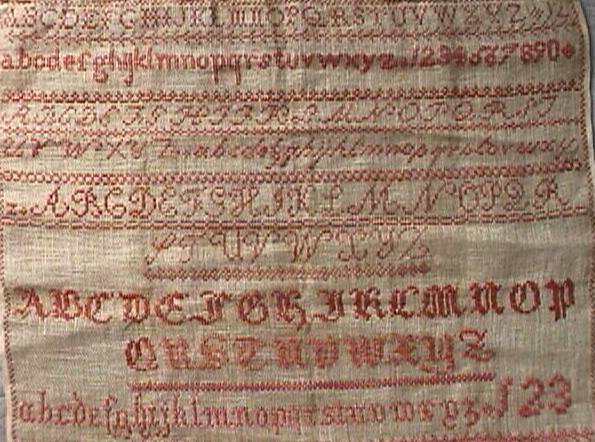 ABCDEFGHIJKLMNOPQRSTUVWXYZ
abcdefghijklmnopqrstuvwxyz 1234567890
ABCDEFGHIJKLMNOPQRST
UVWXYZ abcdefghijklmnopqrstuvwxyz
ABCDEFGHIKLMNOPQR
STUVWXYZ
ABCDEFGHIKLMNOP
QRSTUVWXYZ
abcdefghijklmnopqrstuvwxyz 123